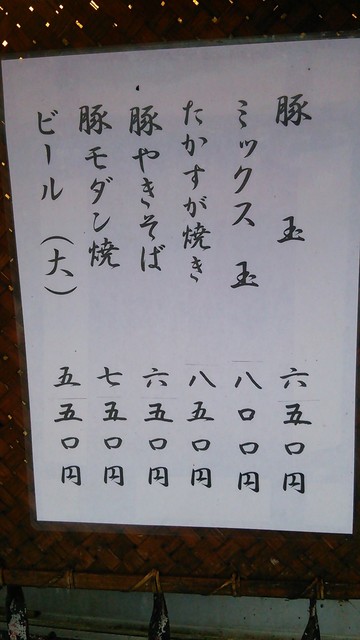 豚玉 六五〇円
ミックス玉 八〇〇円
たかすが焼き 八五〇円
豚やきそば 六五〇円
豚モダン焼 七五〇円
ビール（大） 五五〇円